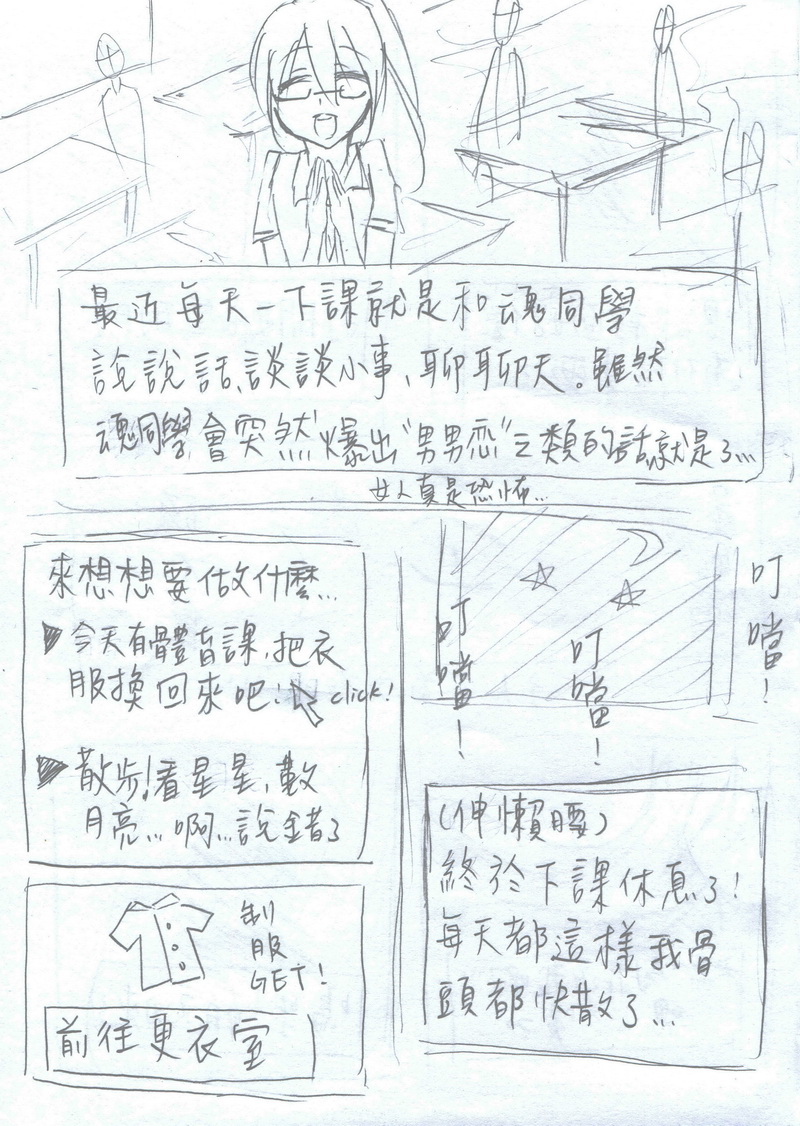 最近每天一下課就是和魂同學
說說話、談談小事、聊聊天。雖然
魂同學會突然爆出"男男戀"之類的話就是了...
女人真是恐怖...
叮噹!
叮噹!
叮噹!
(伸懶腰)
終於下課休息了!
每天都這樣我骨
頭都快散了...
來想想要做什麼...
今天有體育課,把衣
服換回來吧! click!
散步!看星星,數
月亮...啊...說錯了
制
服
GET!
前往更衣室